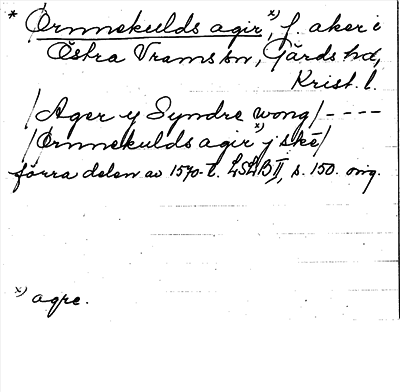 * Örmekulds agir, x) f. aker i
Östra Vrams sn, Gärds hd,
Krist. l.
/Ager y Syndre wong/ - - - -
/Ørmekulds agir x) j skē/
förra delen av 1570-t. LSLB II, s. 150. orig.
x) agre.